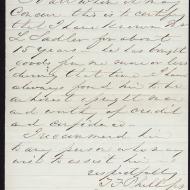 To all whom it may
Concern this is to certify
that I have known
L Sadler for about
15 years & he has bought
goods from me more or less
during that time & I have
always found him to be
an honest upright man
and worthy of credit
and confidence.
I recommend him
to any person who may
wish to assist him
respectfully